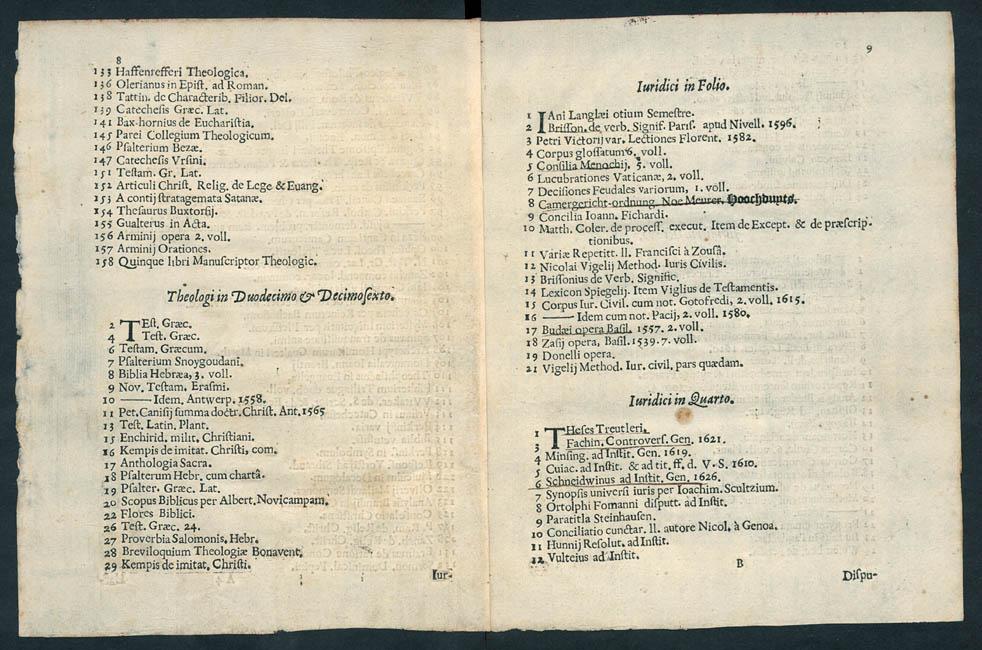 8
133 Haffenrefferi Theologica.
136 Olerianus in Epist. ad Roman.
138 Tattin. de Characterib. Filior. Del.
139 Catechesis Græc. Lat.
141 Bax-hornius de Eucharistia.
145 Parei Collegium Theologicum.
146 Psalterium Bezæ.
147 Catechesis Vrsini.
151 Testam. Gr. Lat.
152 Articuli Christ. Relig. de Lege & Euang.
153 Acontij stratagemata Satanæ.
154 Thesaurus Buxtorfij.
155 Gualterus in Acta.
156 Arminij opera 2. voll.
157 Arminij Orationes.
158 Quinque libri Manuscriptor Theologic.
Theologi in Duodecimo & Decimosexto.
2 TEst. Græc.
4 Test. Græc.
6 Testam. Græcum.
7 Psalterium Snoygoudani.
8 Biblia Hebræa, 3. voll.
9 Nov. Testam. Erasmi.
10 —— Idem. Antwerp. 1558.
11 Pet. Canisij summa doctr. Christ. Ant. 1565
13 Test. Latin. Plant.
15 Enchirid. milit. Christiani.
16 Kempis de imitat. Christi, com.
17 Anthologia Sacra.
18 Psalterum Hebr. cum chartâ.
19 Psalter. Græc. Lat.
20 Scopus Biblicus per Albert. Novicampam.
22 Flores Biblici.
26 Test. Græc. 24.
27 Proverbia Salomonis, Hebr.
28 Breviloquium Theologiæ Bonavent.
29 Kempis de imitat. Christi.
Iur-
9
Iuridici in Folio.
1 IAni Langlæi otium Semestre.
2 Brisson. de verb. Signif. Paris. apud Nivell. 1596.
3 Petri Victorij var. Lectiones Florent. 1582.
4 Corpus glossatum 6. voll.
5 Consilia Menochij. 5. voll.
6 Lucubrationes Vaticanæ, 2. voll.
7 Decisiones Feudales variorum, 1. voll.
8 Camergericht-ordnung. Noe Meurer.
9 Concilia Ioann. Fichardi.
10 Matth. Coler. de process. execut. Item de Except. & de præscrip-
tionibus.
11 Variæ Repetitt. ll. Francisci à Zousâ.
12 Nicolai Vigelij Method. Iuris Civilis.
13 Brissonius de Verb. Signific.
14 Lexicon Spiegelij. Item Viglius de Testamentis.
15 Corpus Iur. Civil. cum not. Gotofredi, 2. voll. 1615.
16 —— Idem cum not. Pacij, 2. voll. 1580.
17 Budæi opera Basil. 1557. 2. voll.
18 Zasij opera, Basil. 1539. 7. voll.
19 Donelli opera.
21 Vigelij Method. Iur. civil. pars quædam.
Iuridici in Quarto.
1 THeses Treutleri.
3 Fachin. Controvers. Gen. 1621.
4 Minsing. ad Instit. Gen. 1619.
5 Cuiac. ad Instit. & ad tit. ff. d. V. S. 1610.
6 Schneidwinus ad Instit. Gen. 1626.
7 Synopsis universi iuris per Ioachim. Scultzium.
8 Ortolphi Fomanni disputt. ad Instit.
9 Paratitla Steinhausen.
10 Conciliatio cunctar. ll. autore Nicol. à Genoa.
11 Hunnij Resolut. ad Instit.
12 Vulteius ad Instit.
B
Dispu-